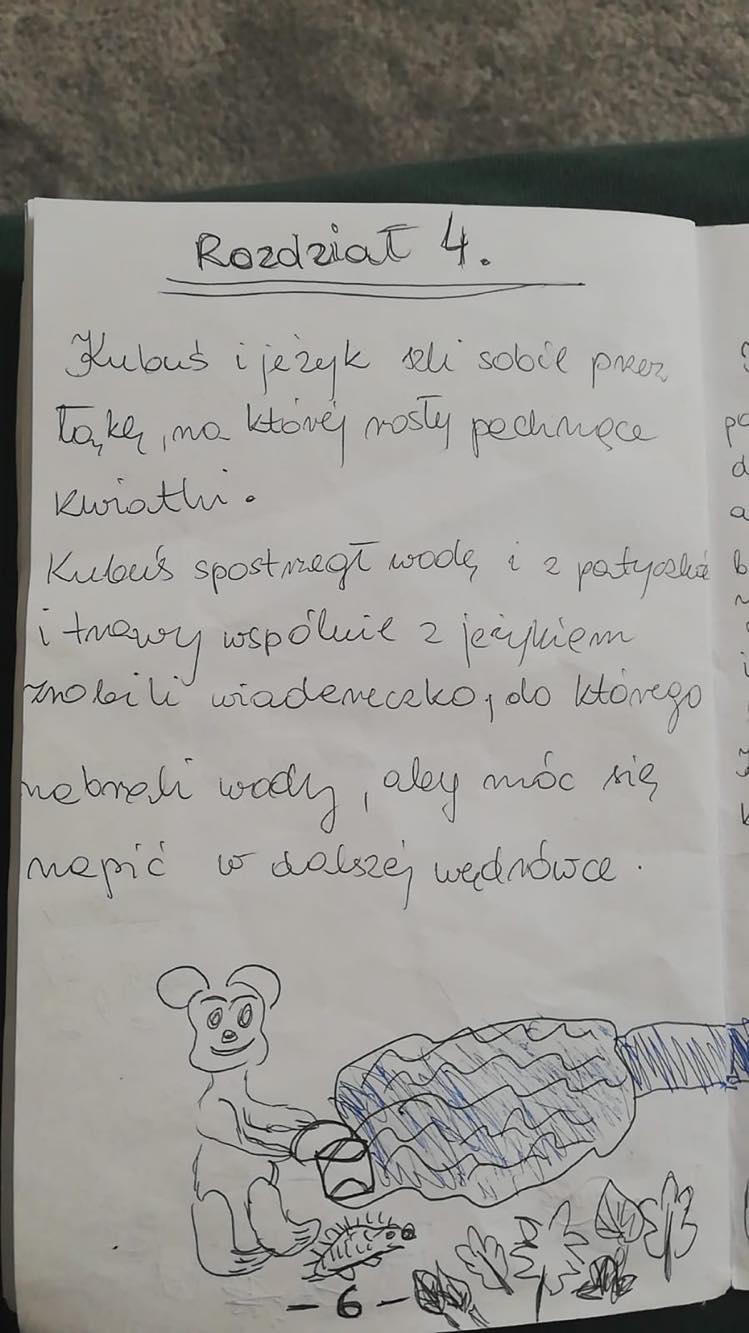 Rozdział 4.
Kubuś i jeżyk szli sobie przez
łąkę, na której rosły pachnące
kwiatki.
Kubuś spostrzegł wodę i z patyczka
i trawy wspólnie z jeżykiem
zrobili wiadereczko, do którego
nabrali wody, aby móc się
napić w dalszej wędrówce.
- 6 -